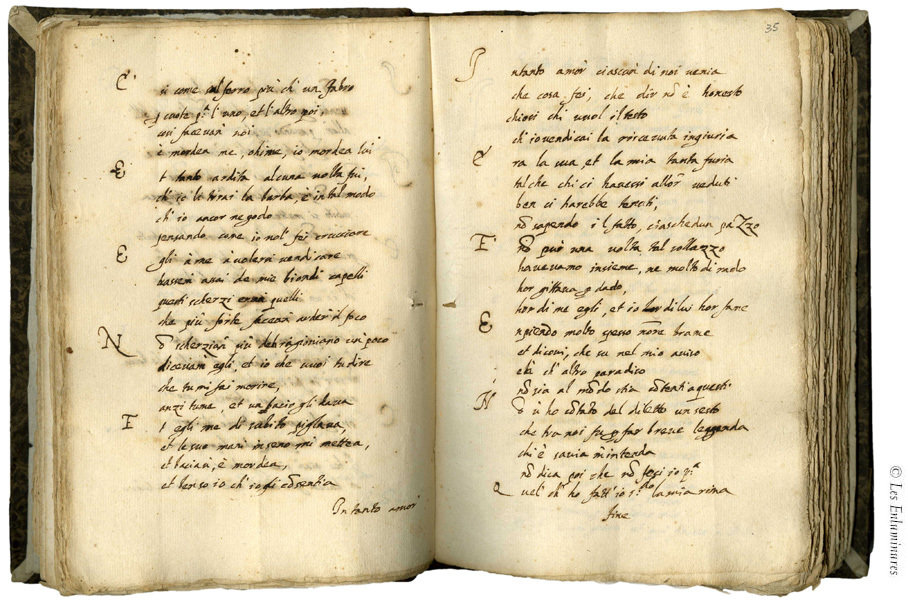 C si come sul ferro più ch' un fabro
cuote p.ª l' uno, et l' altro poi,
cosi facevan noi
e mordea me, ohime, io mordea lui
E t tanto ardita alcuna volta fui,
ch' io li tirai la barba, e in tal modo
ch' io ancor ne godo
pensando come io nol fei crucciare
E gli à me a volersi vendicare
assai de miei biondi capelli
questi scherzi eran quelli
che più forte facean arder il foco
N ō scherzian più un poco
dicevami egli, et io che vuoi tu dire
che tu mi fai morire,
anzi tu me, et un bacio gli dava
E t egli me di subito pigliava,
et le sue mani in seno mi mettea,
et baciava, e mordea,
et io ch' io gli cōsentia
Intanto amor
35
I ntanto amor ciascun di noi venia
che cosa fei, che dir nō è honesto
chiosi chi vuol il testo
ch' io vendicai la ricevuta ingiuria
E ra la sua et la mia tanta furia
talche chi ci havessi allor veduti
ben ci harebbe tenuti,
nō sapendo il fatto, ciaschedun paZzo
E nō può una volta tal sollazzo
havevamo insieme, ne molto di rado
hor gittava p dado,
hor di me egli, et io hor di lui hor fane
E mpiendo molto spesso nōre brame
et dicovi, che su nel mio aviso
altro paradiso
nō sia al mōdo stia cōtenti a questi
H or v' ho cōtato del diletto un sesto
che tra noi fu p far breve leggenda
chi è savia m' intenda
nō dica poi che nō fesi io p.ª
Q uel ch' ho fatt' io la mia rina
fine
© Les Enluminures